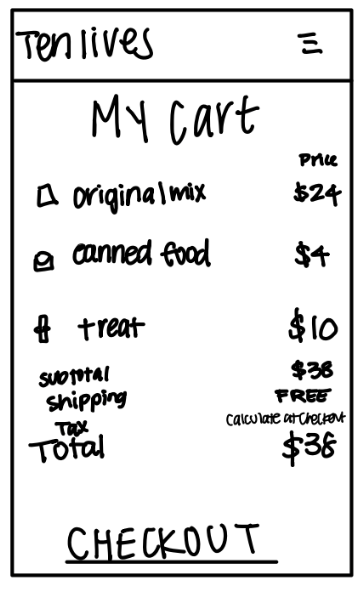 Ten lives
My cart
Price
original mix $24
canned food $4
treat $10
subtotal $38
shipping FREE
Tax Calculate at checkout
Total $38
CHECKOUT